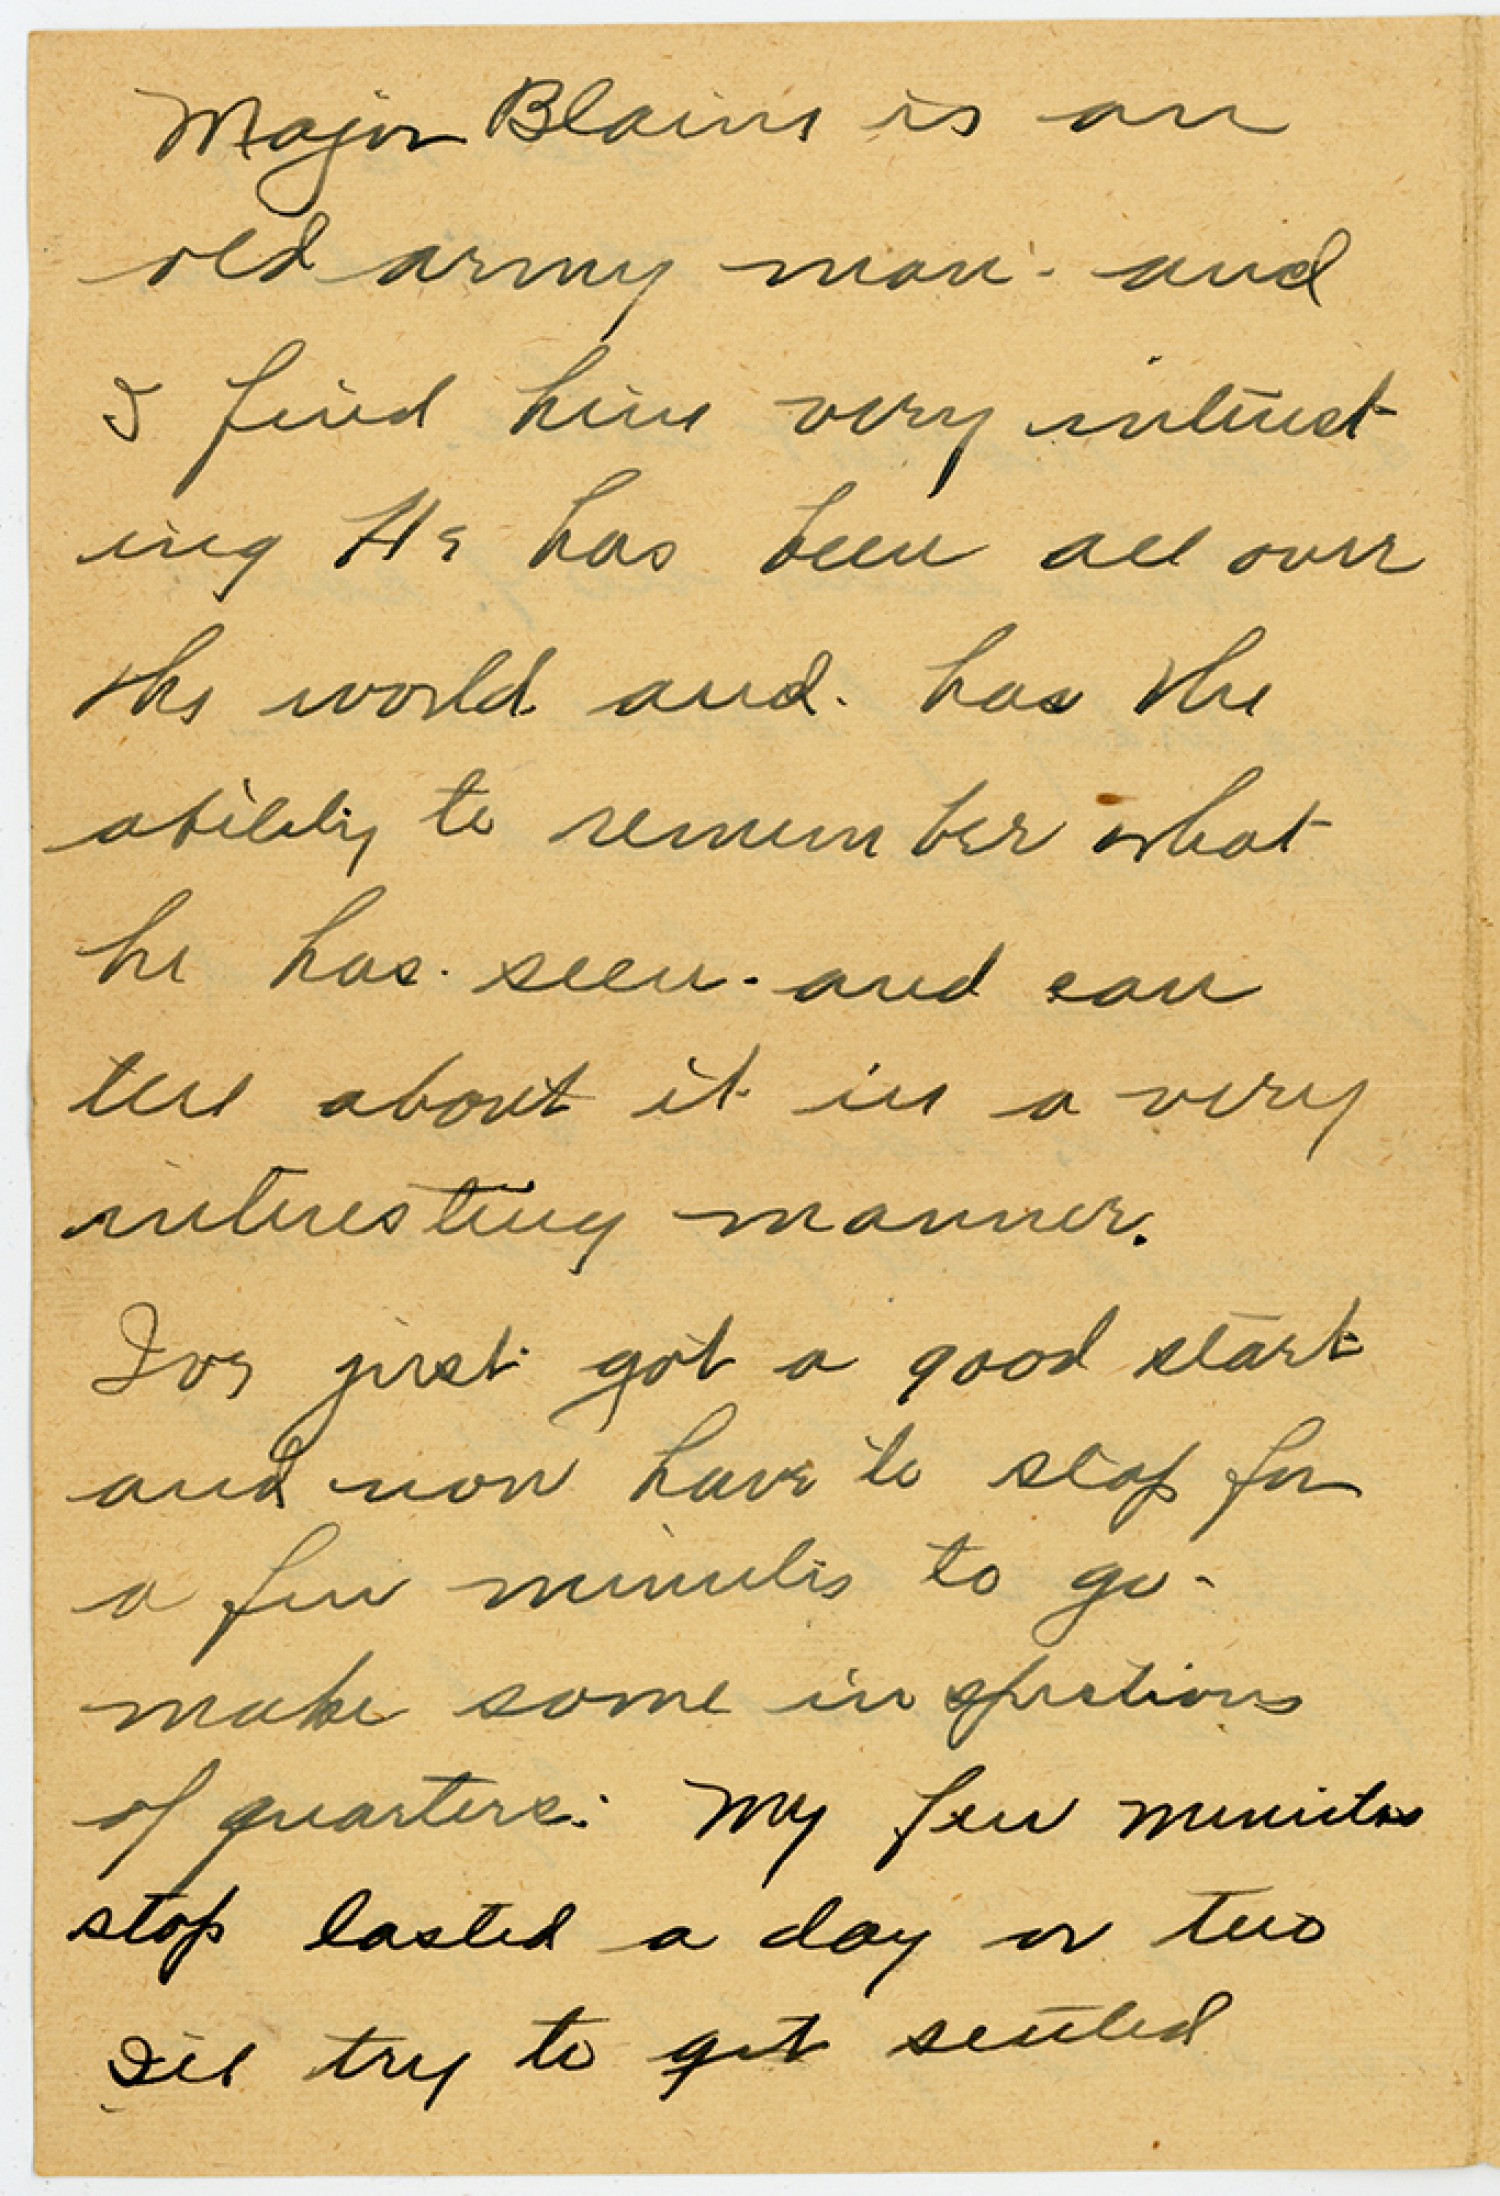 Major Blaine is an
old army man - and
I find him very interest
ing He has been all over
the world and. has the
ability to remember what
he has. seen. and can
tell about it in a very
interesting manner.
Ive just got a good start
and now have to stop for
a few minutes to go -
make some inspections
of quarters. My few minutes
stop lasted a day or two
Ill try to get settled